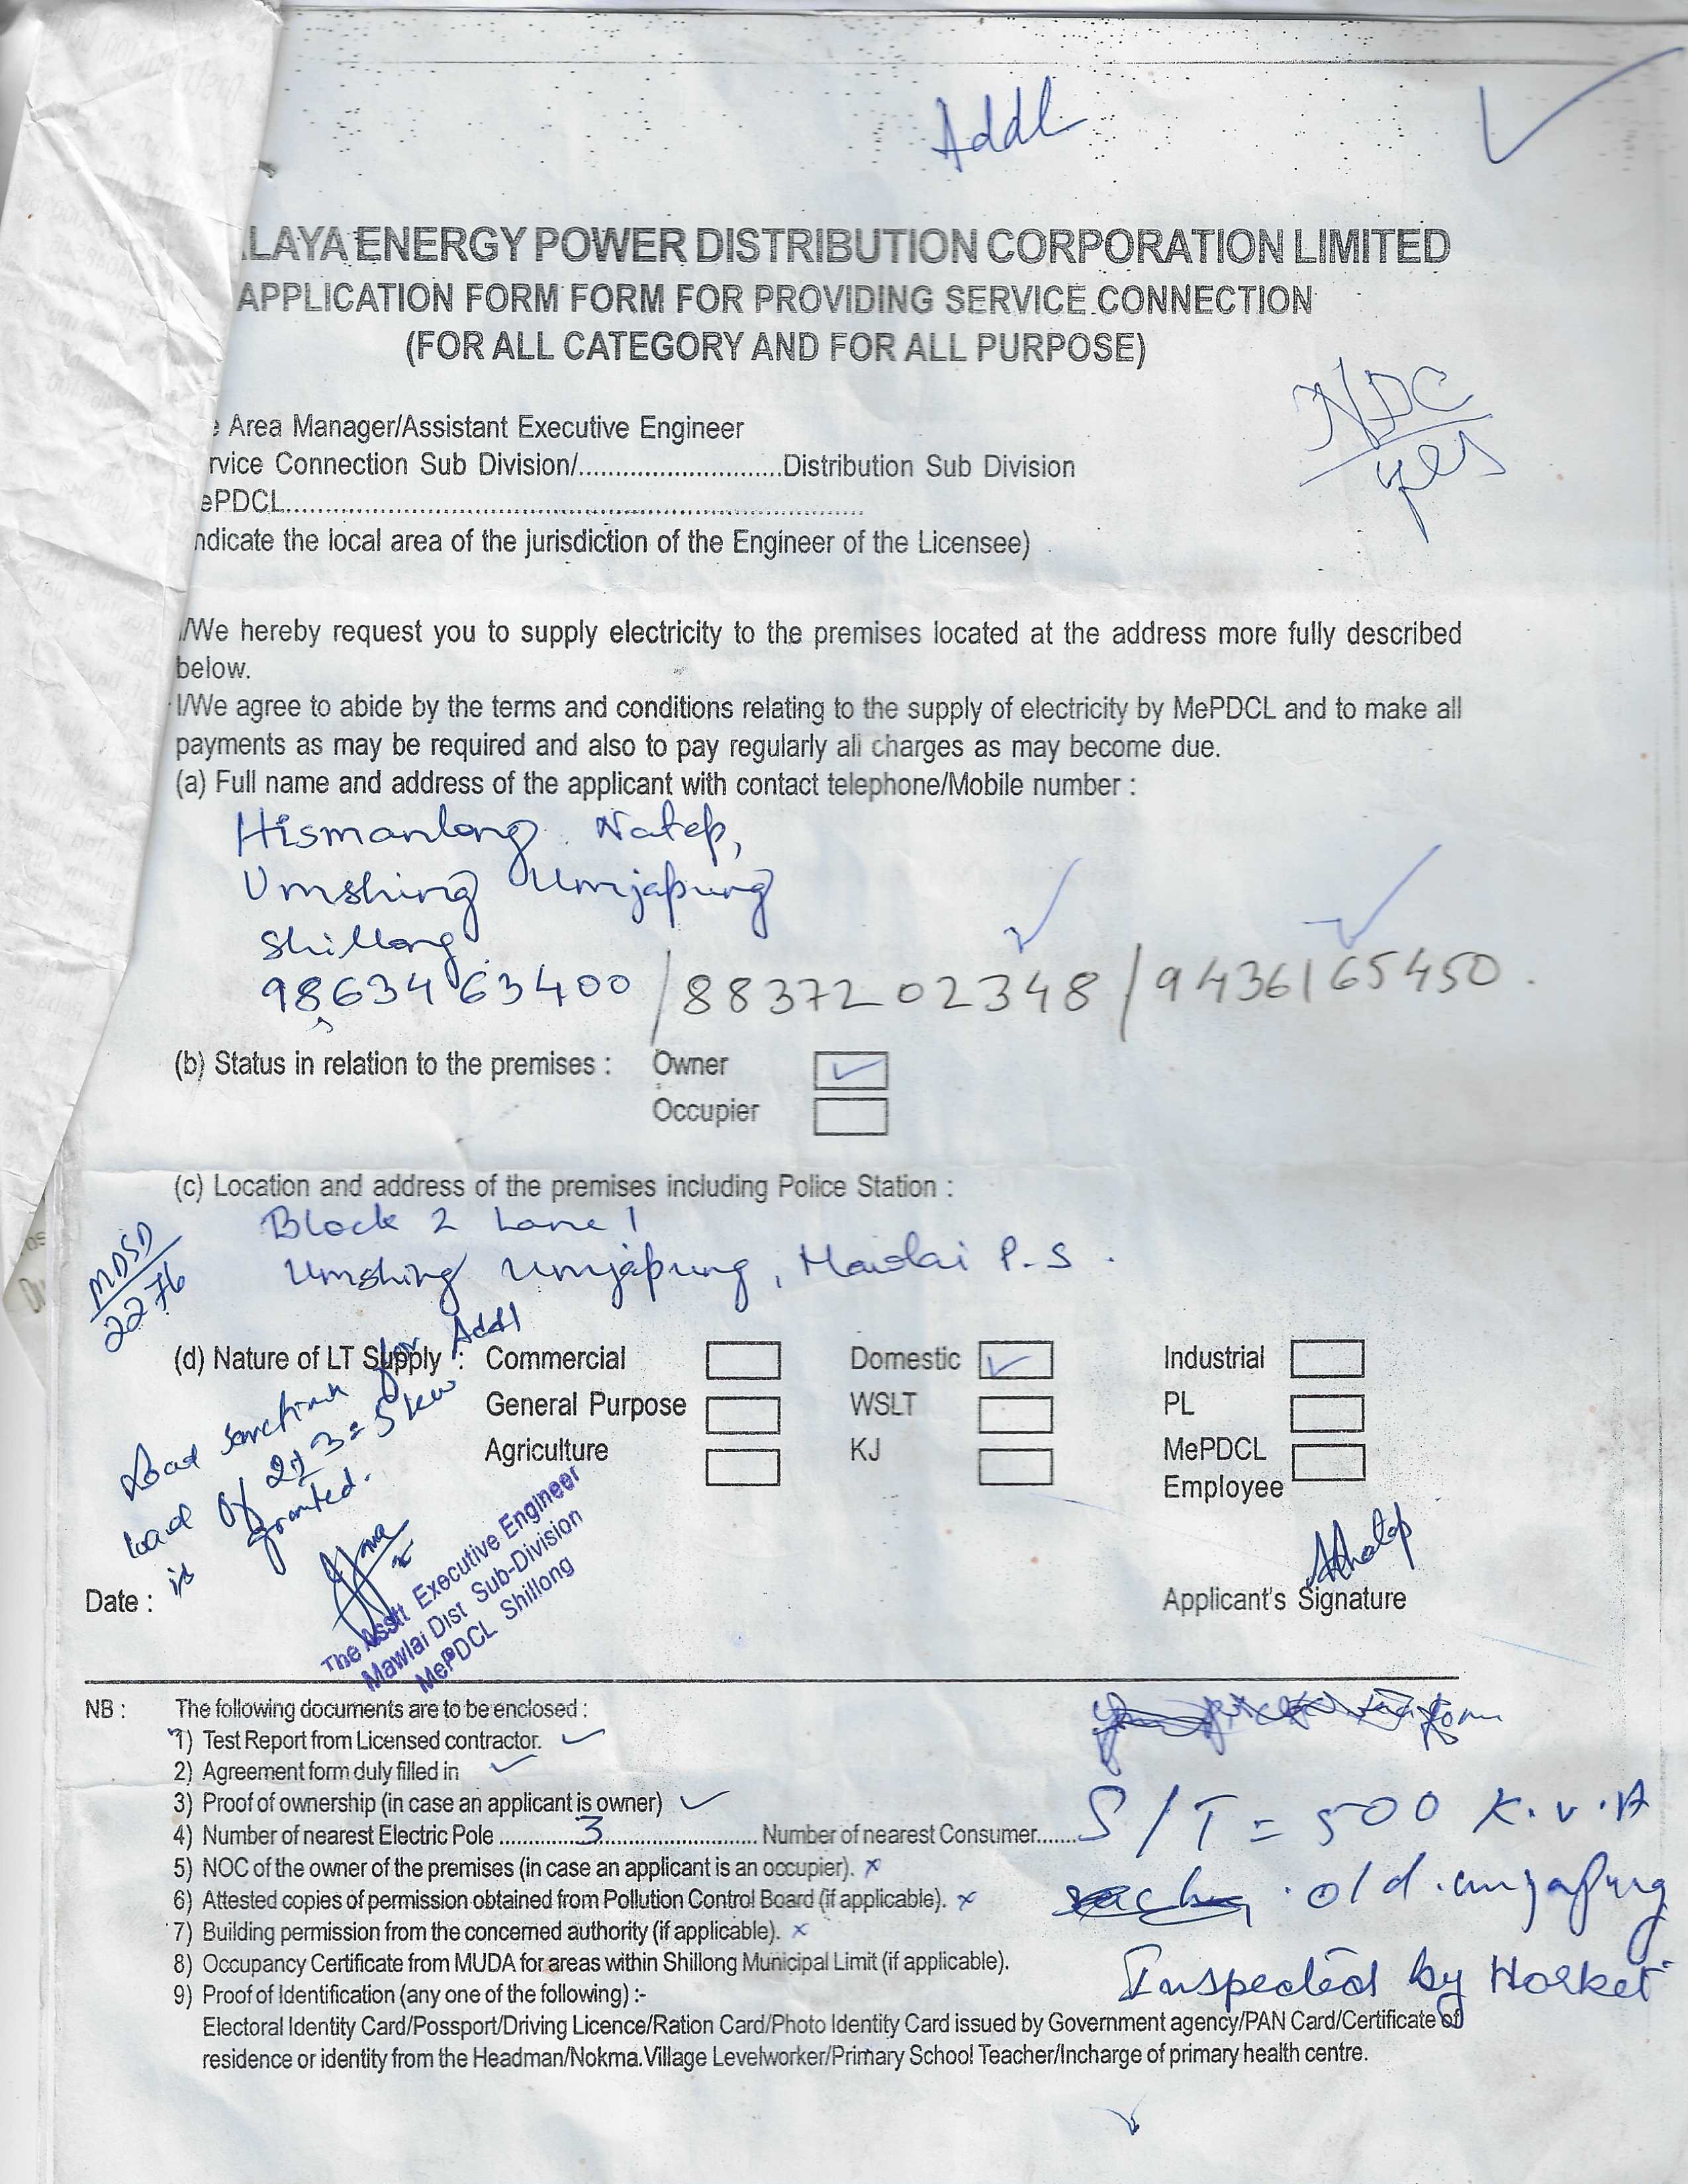 Addl
LAYA ENERGY POWER DISTRIBUTION CORPORATION LIMITED
APPLICATION FORM FORM FOR PROVIDING SERVICE CONNECTION
(FOR ALL CATEGORY AND FOR ALL PURPOSE)
NDC
yes
e Area Manager/Assistant Executive Engineer
rvice Connection Sub Division/...........................Distribution Sub Division
ePDCL................................................................................
ndicate the local area of the jurisdiction of the Engineer of the Licensee)
I/We hereby request you to supply electricity to the premises located at the address more fully described
below.
I/We agree to abide by the terms and conditions relating to the supply of electricity by MePDCL and to make all
payments as may be required and also to pay regularly all charges as may become due.
(a) Full name and address of the applicant with contact telephone/Mobile number :
Hismanlang Natep,
Umshing Umjapung
Shillong
9863463400 / 8837202348 / 9436165450.
(b) Status in relation to the premises : Owner
Occupier
(c) Location and address of the premises including Police Station :
Block 2 Lane 1
Umshing Umjapung, Mawlai P.S.
MDSD
2276
(d) Nature of LT Supply : Commercial Domestic Industrial
General Purpose WSLT PL
Agriculture KJ MePDCL
Employee
Load sanction for Addl
load of 2+3=5 kw
is granted.
The Asstt Executive Engineer
Mawlai Dist Sub-Division
MePDCL Shillong
Date :
Applicant's Signature
NB : The following documents are to be enclosed :
1) Test Report from Licensed contractor.
2) Agreement form duly filled in
3) Proof of ownership (in case an applicant is owner)
4) Number of nearest Electric Pole ..............3............................ Number of nearest Consumer.......
S/T = 500 K.V.A
5) NOC of the owner of the premises (in case an applicant is an occupier). x
6) Attested copies of permission obtained from Pollution Control Board (if applicable). x
old umjapung
7) Building permission from the concerned authority (if applicable). x
8) Occupancy Certificate from MUDA for areas within Shillong Municipal Limit (if applicable).
Inspected by Horket
9) Proof of Identification (any one of the following) :-
Electoral Identity Card/Possport/Driving Licence/Ration Card/Photo Identity Card issued by Government agency/PAN Card/Certificate of
residence or identity from the Headman/Nokma.Village Levelworker/Primary School Teacher/Incharge of primary health centre.